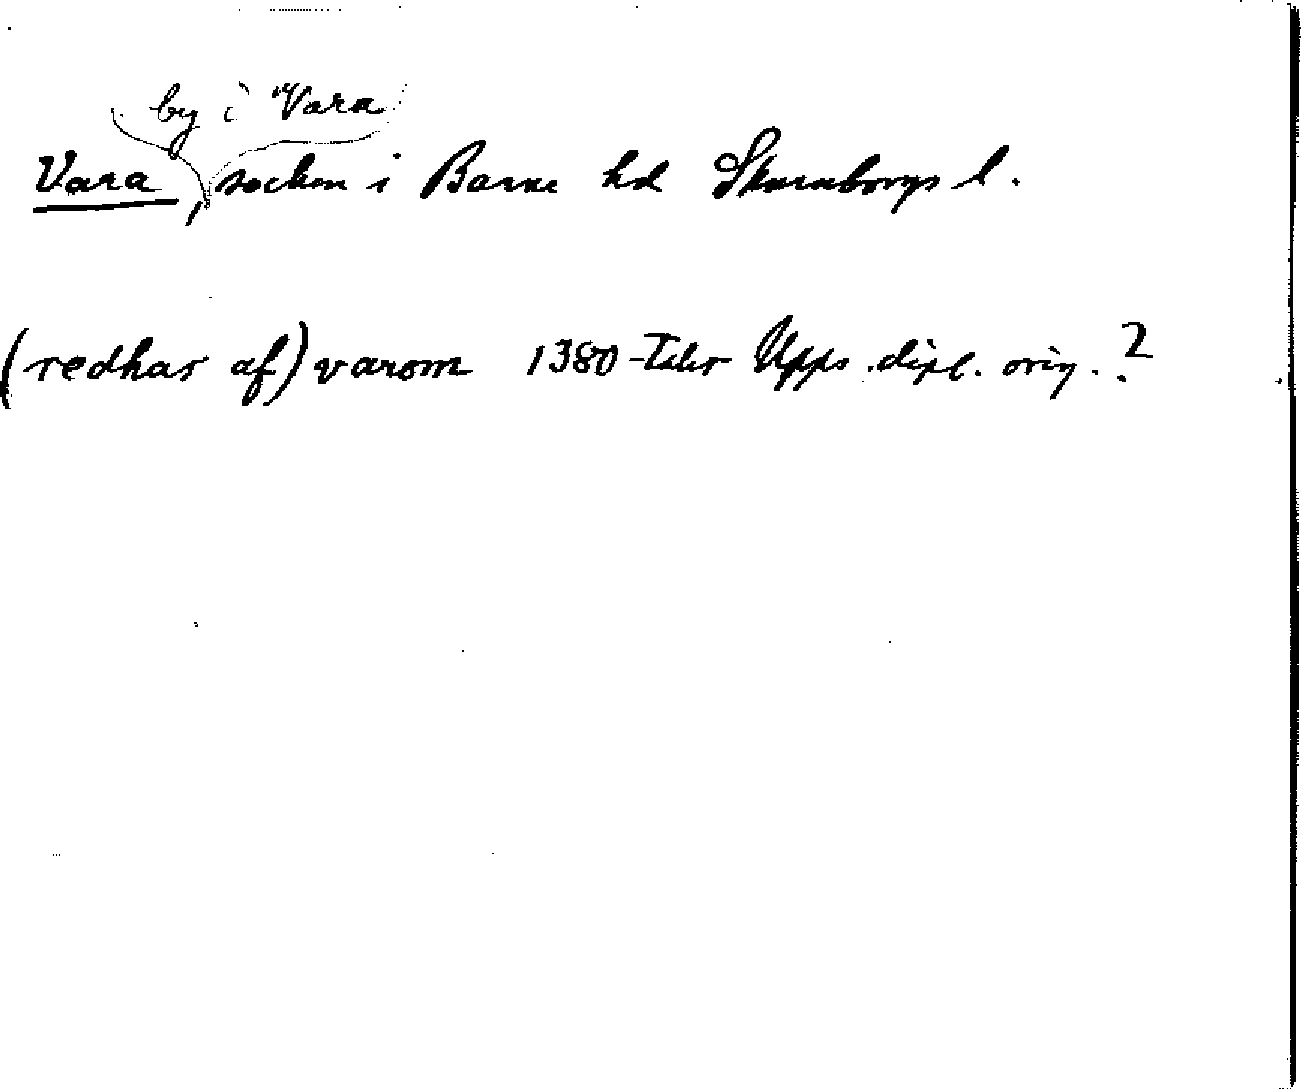 by i Vara
Vara, socken i Barne hd Skaraborgs l.
(redhar af) varom 1380-talet Upps. dipl. orig. ?